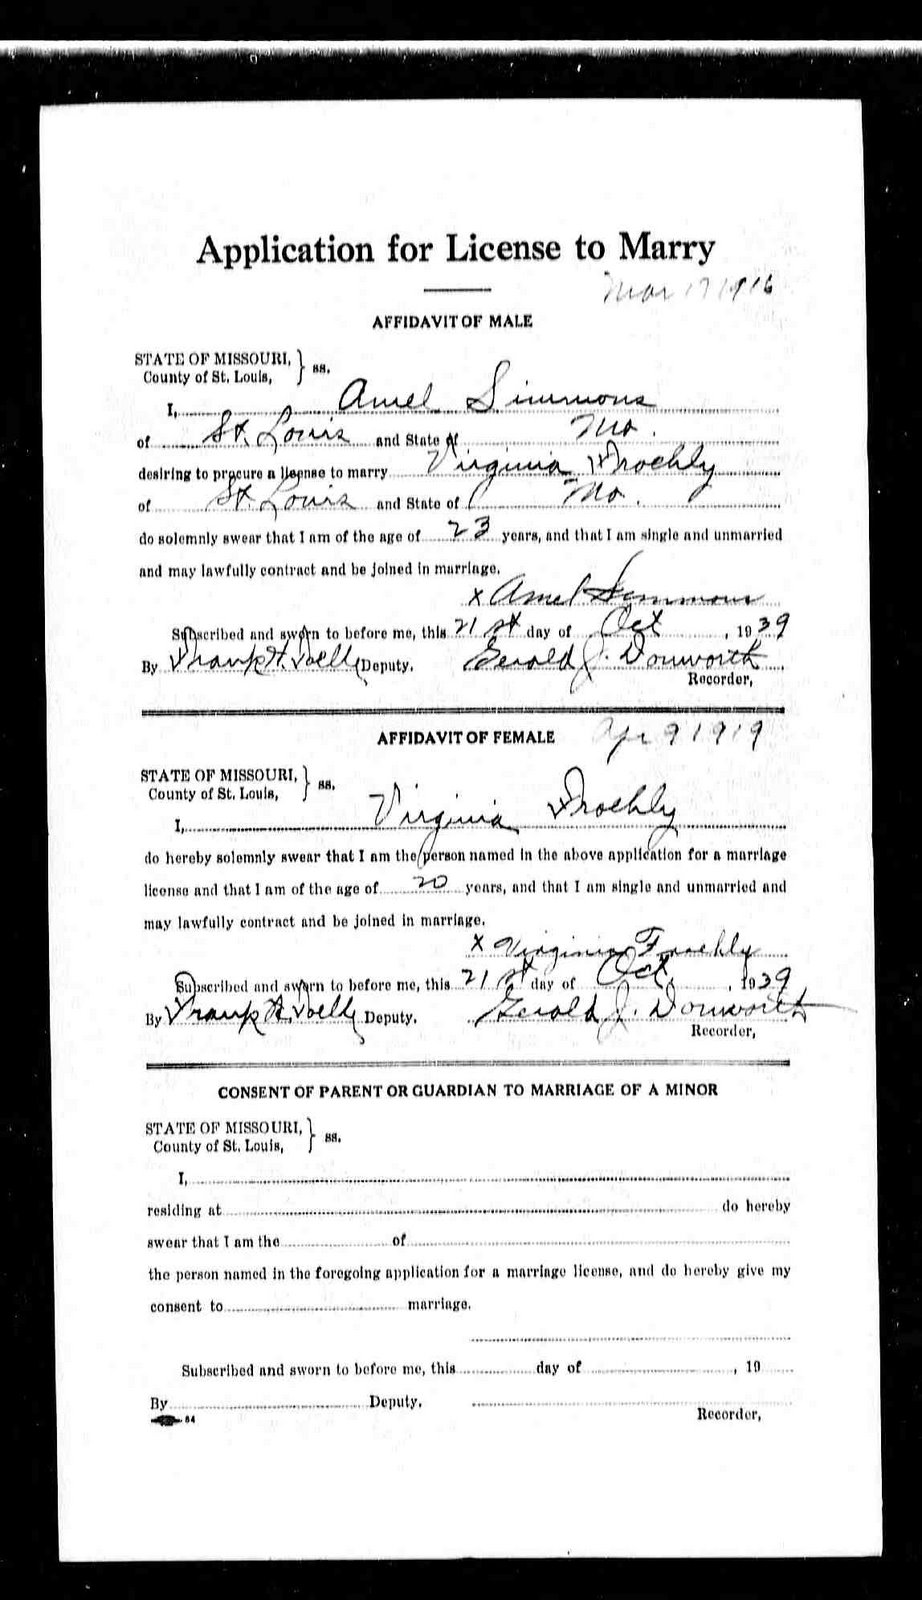 Application for License to Marry
Mar 17 1916
AFFIDAVIT OF MALE
STATE OF MISSOURI, } ss.
County of St. Louis,
I, Amel Simmons
of St. Louis and State of Mo.
desiring to procure a license to marry Virginia Froehly
of St. Louis and State of Mo.
do solemnly swear that I am of the age of 23 years, and that I am single and unmarried
and may lawfully contract and be joined in marriage.
x Amel Simmons
Subscribed and sworn to before me, this 21st day of Oct, 1939
By Frank H. Deputy. Gerald J. Donworth
Recorder,
AFFIDAVIT OF FEMALE Apr 9 1919
STATE OF MISSOURI, } ss.
County of St. Louis,
I, Virginia Froehly
do hereby solemnly swear that I am the person named in the above application for a marriage
license and that I am of the age of 20 years, and that I am single and unmarried and
may lawfully contract and be joined in marriage.
x Virginia Froehly
Subscribed and sworn to before me, this 21st day of Oct, 1939
By Frank H. Deputy. Gerald J. Donworth
Recorder,
CONSENT OF PARENT OR GUARDIAN TO MARRIAGE OF A MINOR
STATE OF MISSOURI, } ss.
County of St. Louis,
I,
residing at do hereby
swear that I am the of
the person named in the foregoing application for a marriage license, and do hereby give my
consent to marriage.
Subscribed and sworn to before me, this day of , 19
By Deputy.
84 Recorder,